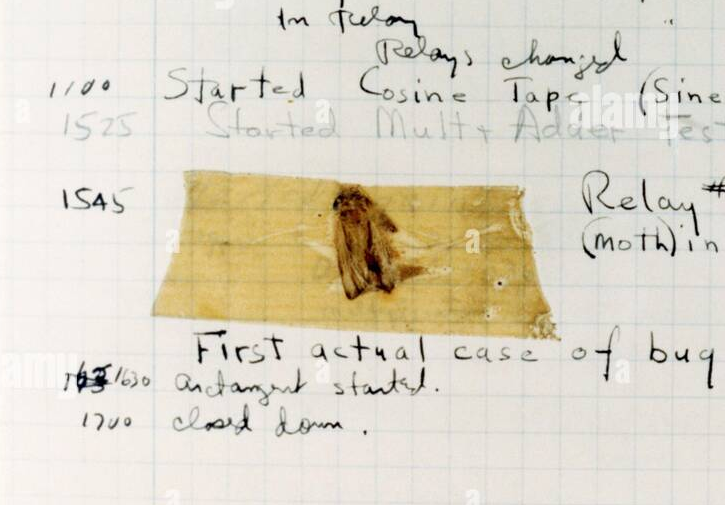 In Relay
Relays changed
1100 Started Cosine Tape (Sine
1525 Started Mult + Adder Tes
1545 Relay #
(moth) in
First actual case of bug
1630 arctangent started.
1700 closed down.